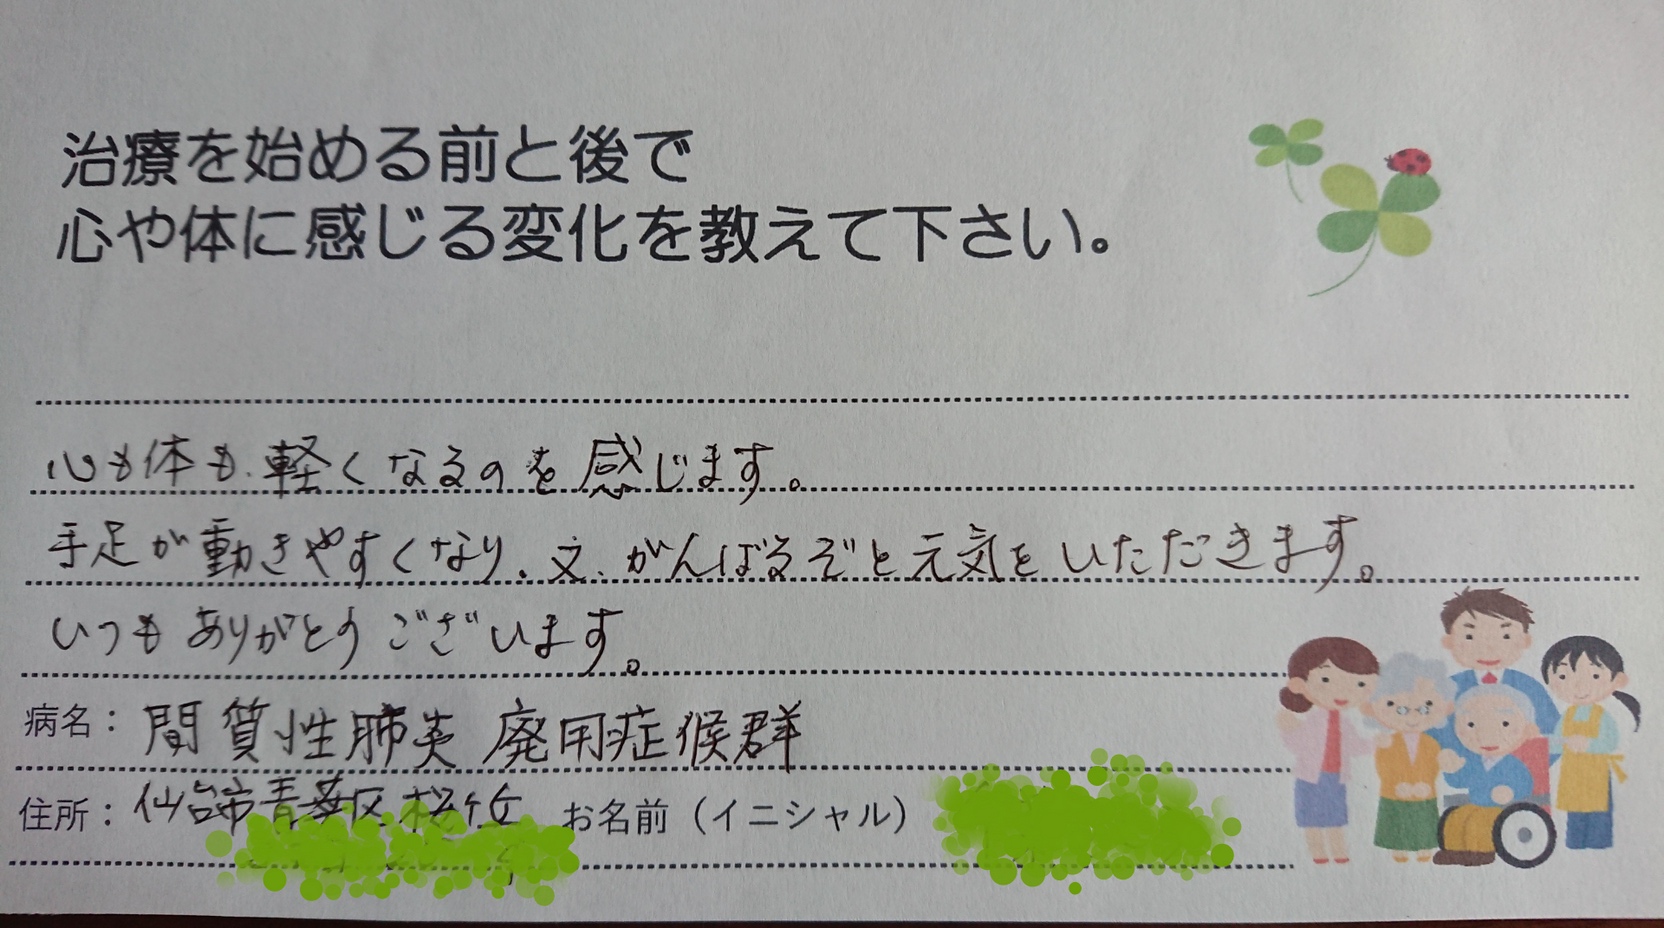 治療を始める前と後で
心や体に感じる変化を教えて下さい。
心も体も軽くなるのを感じます。
手足が動きやすくなり、又、がんばるぞと元気をいただきます。
いつもありがとうございます。
病名：間質性肺炎 廃用症候群
住所：仙台市青葉区桜ケ丘 お名前（イニシャル）